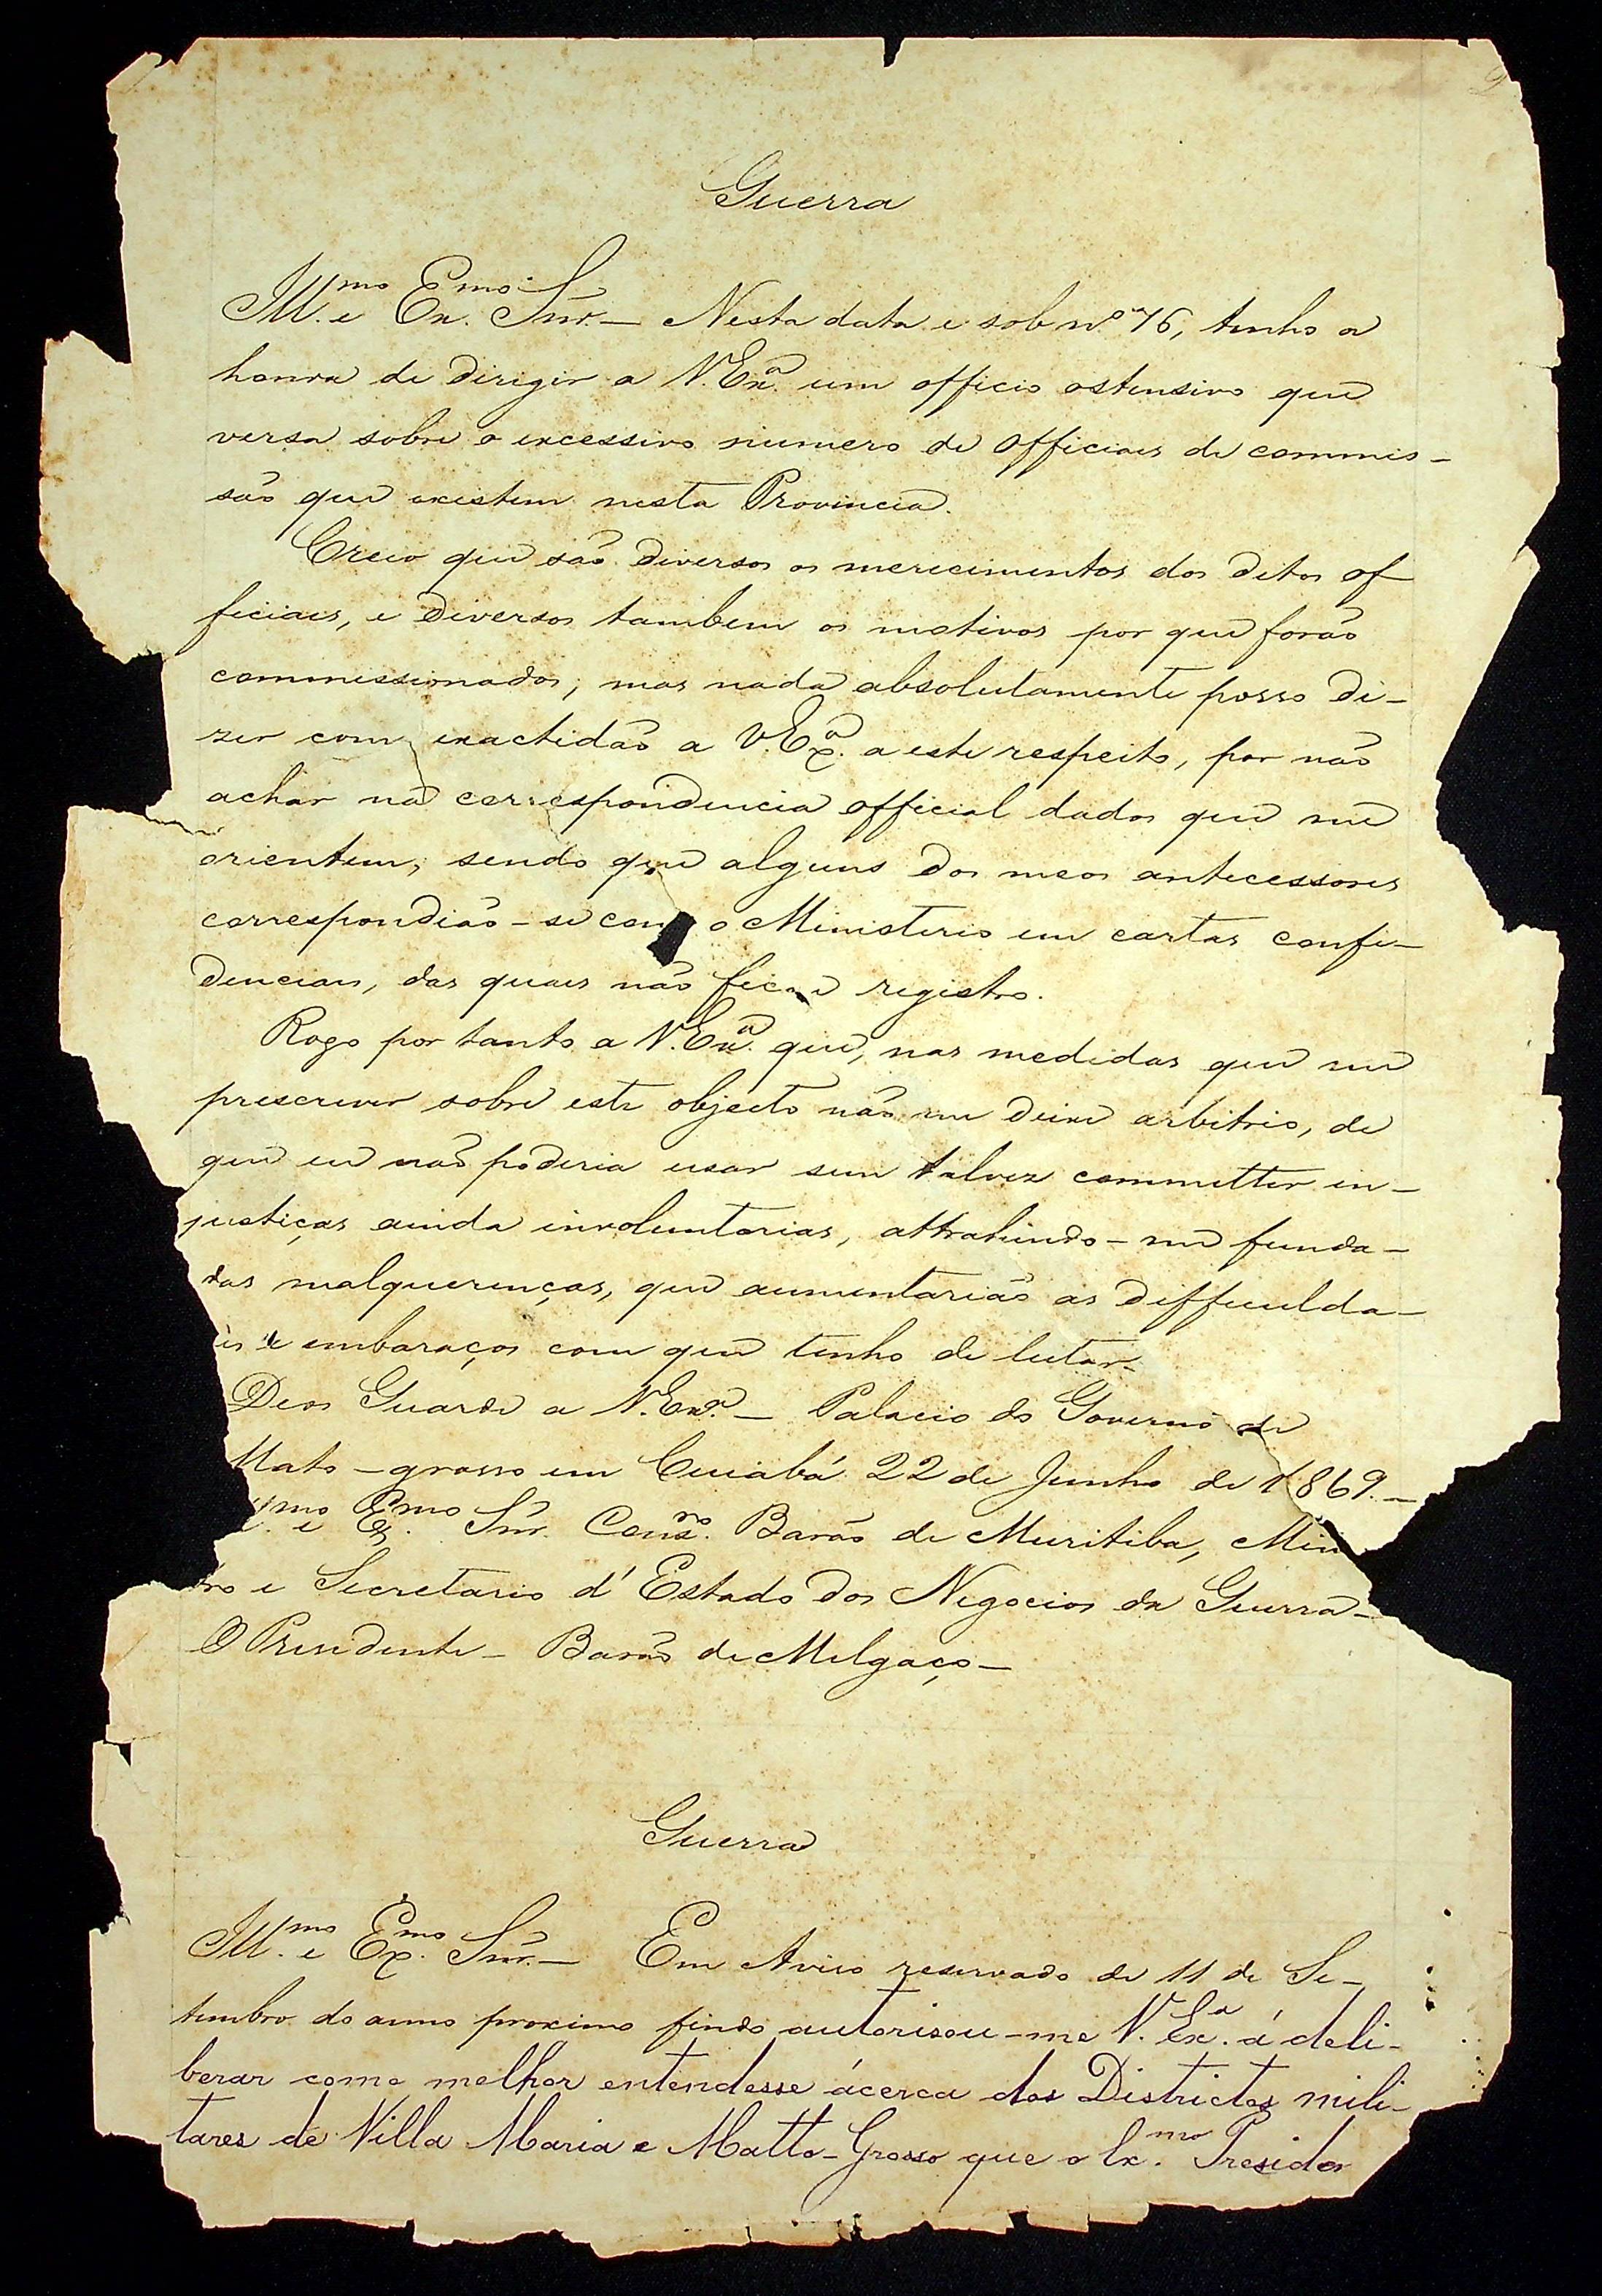 Guerra
Ill.mo e Ex.mo Sñr.— Nesta data e sob n.º 76, tenho a
honra de dirigir a V.Ex.a um officio ostensivo que
versa sobre o excessivo numero de officiaes de commis-
são que existem nesta Provincia.
Creio que são diversos os merecimentos dos ditos of
ficiaes, e diversos tambem os motivos por que forão
commissionados; mas nada absolutamente posso di-
zer com exactidão a V.Ex.a a este respeito, por não
achar na correspondencia official dados que me
orientem, sendo que alguns dos meos antecessores
correspondião-se com o Ministerio em cartas confi-
denciaes, das quaes não fica registro.
Rogo por tanto a V.Ex.a que, nas medidas que me
prescrever sobre este objecto não me deixe arbitrio, de
que eu não poderia usar sem talvez commetter in-
justiças ainda involuntarias, attrahindo-me funda-
das malquerenças, que aumentarião as difficulda-
es e embaraços com que tenho de lutar.
Deos Guarde a V.Ex.a— Palacio do Governo de
Mato-grosso em Cuiabá 22 de Junho de 1869.—
mo e Ex.mo Sñr. Cons.ro Barão de Muritiba, Min
tro e Secretario d'Estado dos Negocios da Guerra—
O Presidente— Barão de Melgaço—
Guerra
Ill.mo e Ex.mo Sñr.— Em Aviso reservado de 11 de Se-
tembro do anno proximo findo autorisou-me V. Ex.a á deli-
berar como melhor entendesse ácerca dos Districtos mili-
tares de Villa Maria e Matto-Grosso que o Ex.mo Presiden